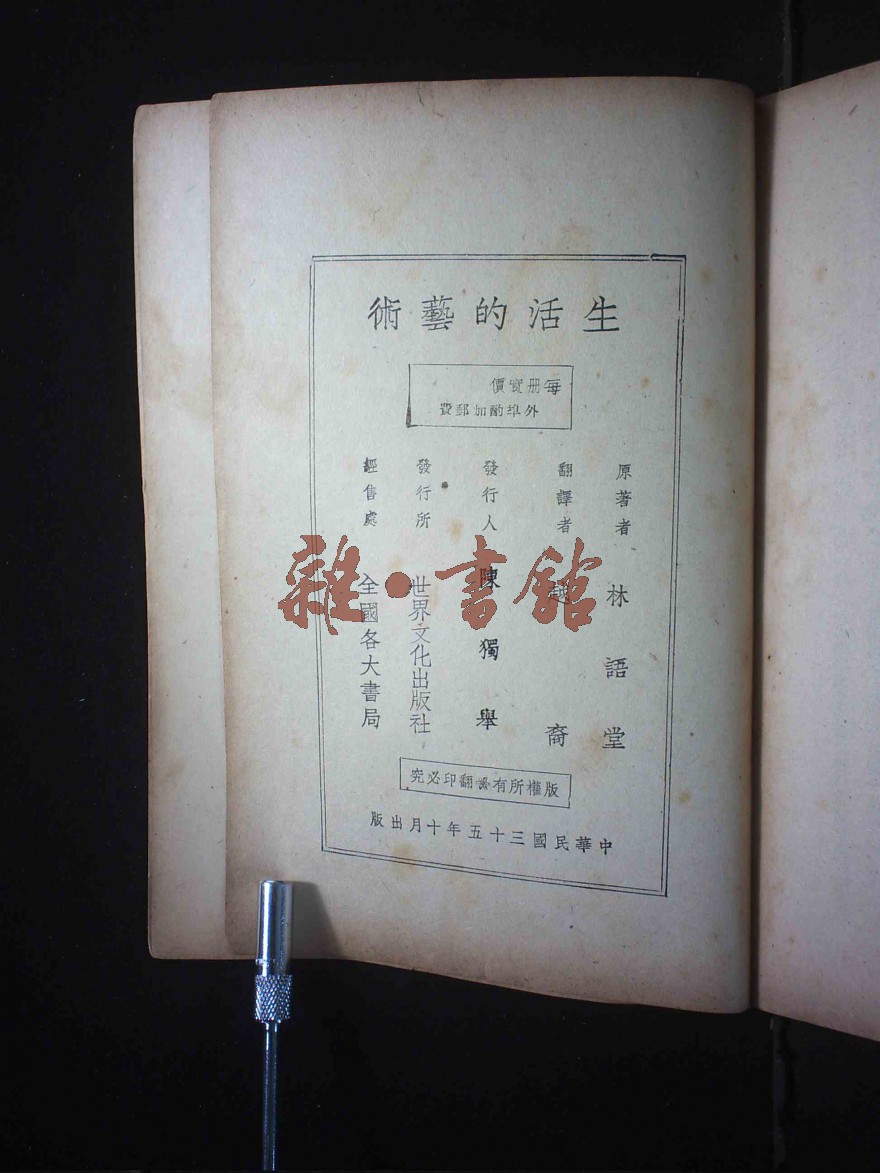 生活的藝術
每册實價
外埠酌加郵費
原著者 林語堂
翻譯者 越裔
發行人 陳獨舉
發行所 世界文化出版社
經售處 全國各大書局
版權所有翻印必究
中華民國三十五年十月出版
雜·書館